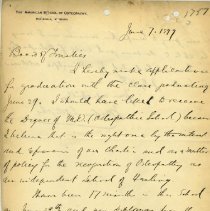 THE AMERICAN SCHOOL OF OSTEOPATHY,
1757
June 7, 1899
Board of Trustees
I hereby make application
for graduation with the class graduating
June 29. I should have liked to receive
the Degree of M.D. (Osteopathic School) because
I believe that is the right one by the intent
and of our Charter and as a matter
of policy for the recognition of Osteopathy as
an independent School of Healing.
Have been 17 months in the School